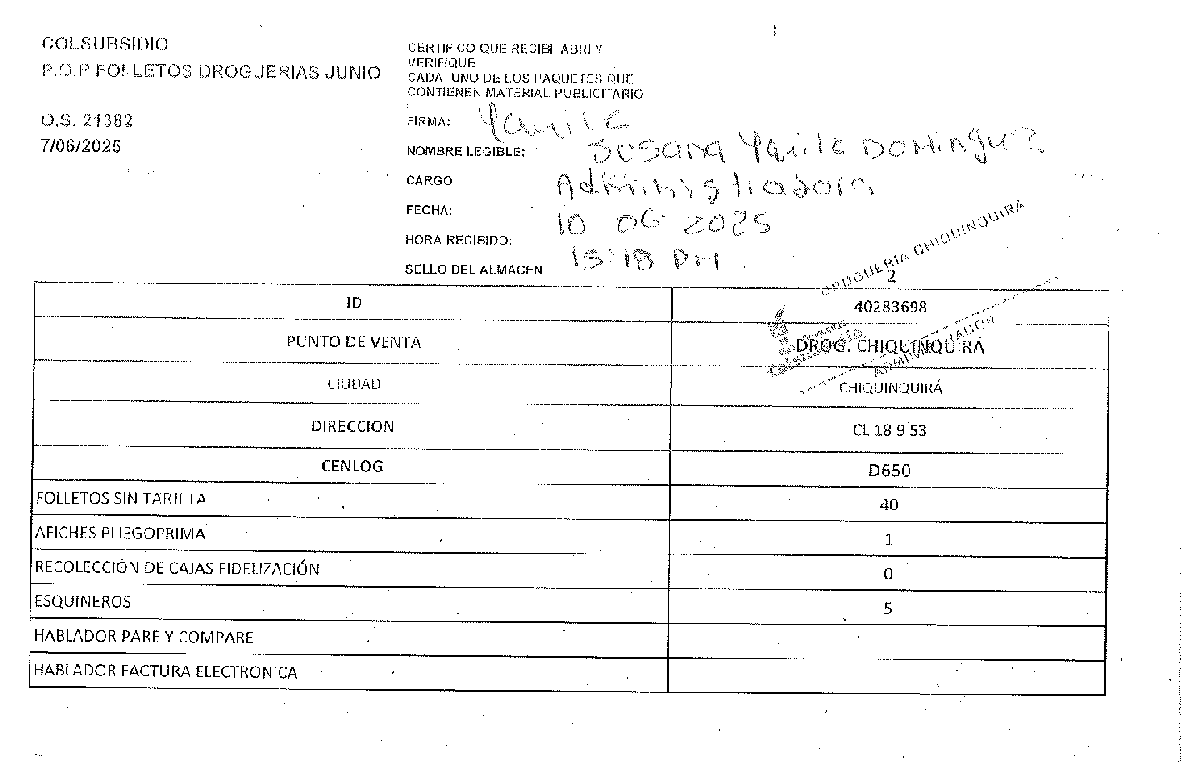 COLSUBSIDIO
P.O.P FOLLETOS DROGUERIAS JUNIO
O.S. 21382
7/06/2025
CERTIFICO QUE RECIBI ABRI Y
VERIFIQUE
CADA UNO DE LOS PAQUETES QUE
CONTIENEN MATERIAL PUBLICITARIO
FIRMA: Yamile
NOMBRE LEGIBLE: Susana Yamile Dominguez
CARGO Administradora
FECHA: 10 06 2025
HORA RECIBIDO: 15:18 PM
SELLO DEL ALMACEN
DROGUERIA CHIQUINQUIRA
2
ID 40283698
PUNTO DE VENTA DROG. CHIQUINQUIRA
CIUDAD CHIQUINQUIRÁ
DIRECCION CL 18 9 53
CENLOG D650
FOLLETOS SIN TARILLA 40
AFICHES PLIEGOPRIMA 1
RECOLECCIÓN DE CAJAS FIDELIZACIÓN 0
ESQUINEROS 5
HABLADOR PARE Y COMPARE
HABLADOR FACTURA ELECTRONICA